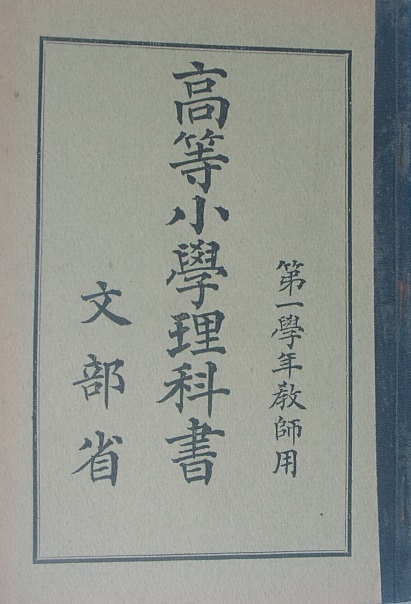 第一學年教師用
高等小學理科書
文部省